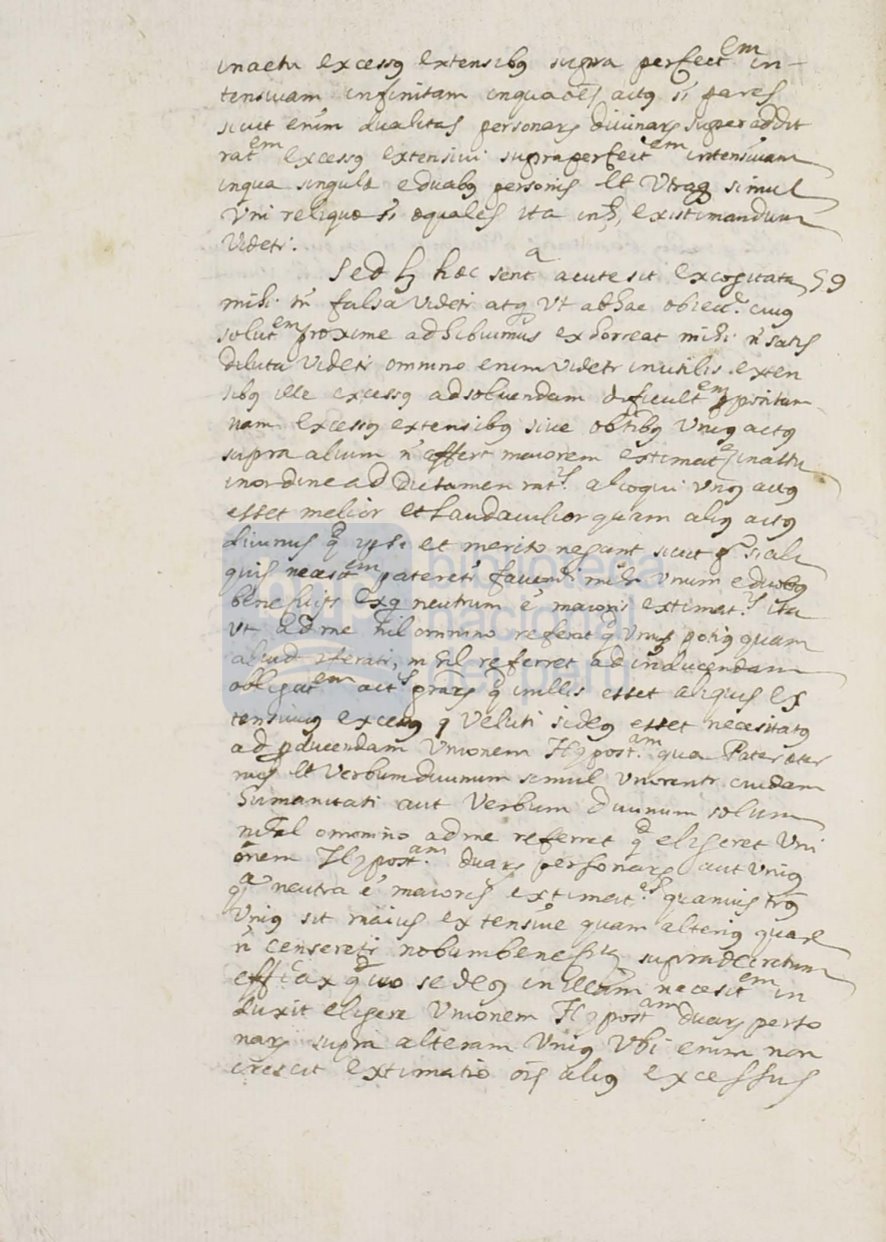 in actu excessꝰ extensibꝰ supra perfect.em in-
tensivam infinitam in qua oēs actꝰ st̃ pares
sicut enim dualitas personarꝫ divinarꝫ superaddit
rat.em excessꝰ extensivi supra perfect.em intensivam
in qua singulæ e duabꝰ personis et utraqꝫ simul
uni reliquæ st̃ æquales ita in existimandum
videtr.
Sed hæc sent.a acute sit excogitata 59
mihi tn̄ falsa videtr atqꝫ ut ab hac obiect. cuiꝰ
solut.em proxime adhibuimus exhorreat mihi n̄ satis
diluta videtr omnino enim videtr inutilis exten
sibꝰ ille excessꝰ ad solvendam dificult.em ppositam
nam excessꝰ extensibꝰ sive unius actꝰ
supra alium n̄ affert maiorem estimat.em in actu
in ordine ad dictamen rat.s alioqui unꝰ actꝰ
esset melior et laudavilior quam aliꝰ actꝰ
divinus q̃ ipsi et merito negant sicut si ali
quis necesit.em pateretr favendi mihi unum e duobꝰ
beneficijs ex q̃ neutrum ē maioris extimat.s ita
ut ad me nil omnino referat q̃d unus potiꝰ quam
aliud nil referret ad inducendam
obligat.em q̃ in illis esset aliquis ex
tensivus excessꝰ q veluti si deꝰ esset necesitatꝰ
ad pducendam unionem Hypost.am qua Pater æter
nus et Verbum divinum simul unirentr cuidam
humanitati aut Verbum divinum solum
nihil omnino ad me referret q̃d eligeret uni
onem Hypost.am duarꝫ personarꝫ aut uniꝰ
q.a neutra ē maioris extimat.s quamvis
uniꝰ sit maius extensive quam alteriꝰ quare
n̄ censeretr nobum benefi supra decretum
efficax quo se deꝰ in illam necesit.em in
duxit eligere Unionem Hypost.am duarꝫ perso
narꝫ supra alteram uniꝰ ubi enim non
crescit extimatio ois aliꝰ excessus